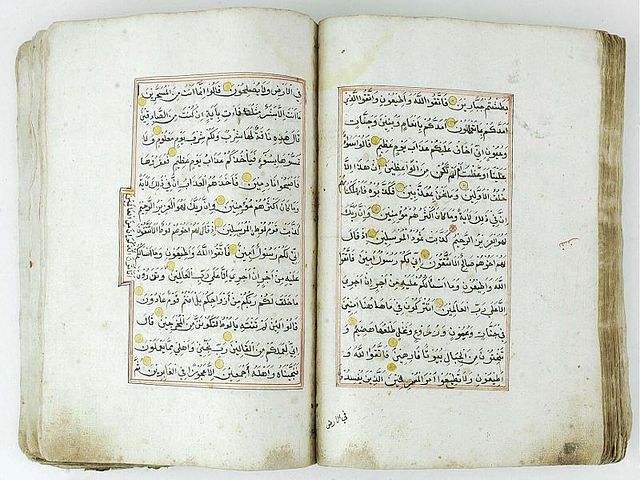 بطشتم جبارين فاتقوا الله واطيعون واتقوا الذي
امدكم بما تعلمون امدكم بانعام وبنين وجنات
وعيون اني اخاف عليكم عذاب يوم عظيم قالوا سواء
علينا اوعظت ام لم تكن من الواعظين ان هذا الا
خلق الاولين وما نحن بمعذبين فكذبوه فاهلكناهم
ان في ذلك لاية وما كان اكثرهم مؤمنين وان ربك
لهو العزيز الرحيم كذبت ثمود المرسلين اذ قال
لهم اخوهم صالح الا تتقون اني لكم رسول امين فاتقوا
الله واطيعون وما اسئلكم عليه من اجر ان اجري
الا على رب العالمين اتتركون في ما ههنا امنين
في جنات وعيون وزروع ونخل طلعها هضيم و
تنحتون من الجبال بيوتا فارهين فاتقوا الله و
اطيعون ولا تطيعوا امر المسرفين الذين يفسدون
في الارض
في الارض ولا يصلحون قالوا انما انت من المسحرين
ما انت الا بشر مثلنا فات باية ان كنت من الصادقين
قال هذه ناقة لها شرب ولكم شرب يوم معلوم ولا
تمسوها بسوء فياخذكم عذاب يوم عظيم فعقروها
فاصبحوا نادمين فاخذهم العذاب ان في ذلك لاية
وما كان اكثرهم مؤمنين وان ربك لهو العزيز الرحيم
كذبت قوم لوط المرسلين اذ قال لهم اخوهم لوط الا تتقون
اني لكم رسول امين فاتقوا الله واطيعون وما اسئلكم
عليه من اجر ان اجري الا على رب العالمين وتذرون
ما خلق لكم ربكم من ازواجكم بل انتم قوم عادون
قالوا لئن لم تنته يا لوط لتكونن من المخرجين قال
اني لعملكم من القالين رب نجني واهلي مما يعملون
فنجيناه واهله اجمعين الا عجوزا في الغابرين ثم
اتاتون الذكران من العالمين